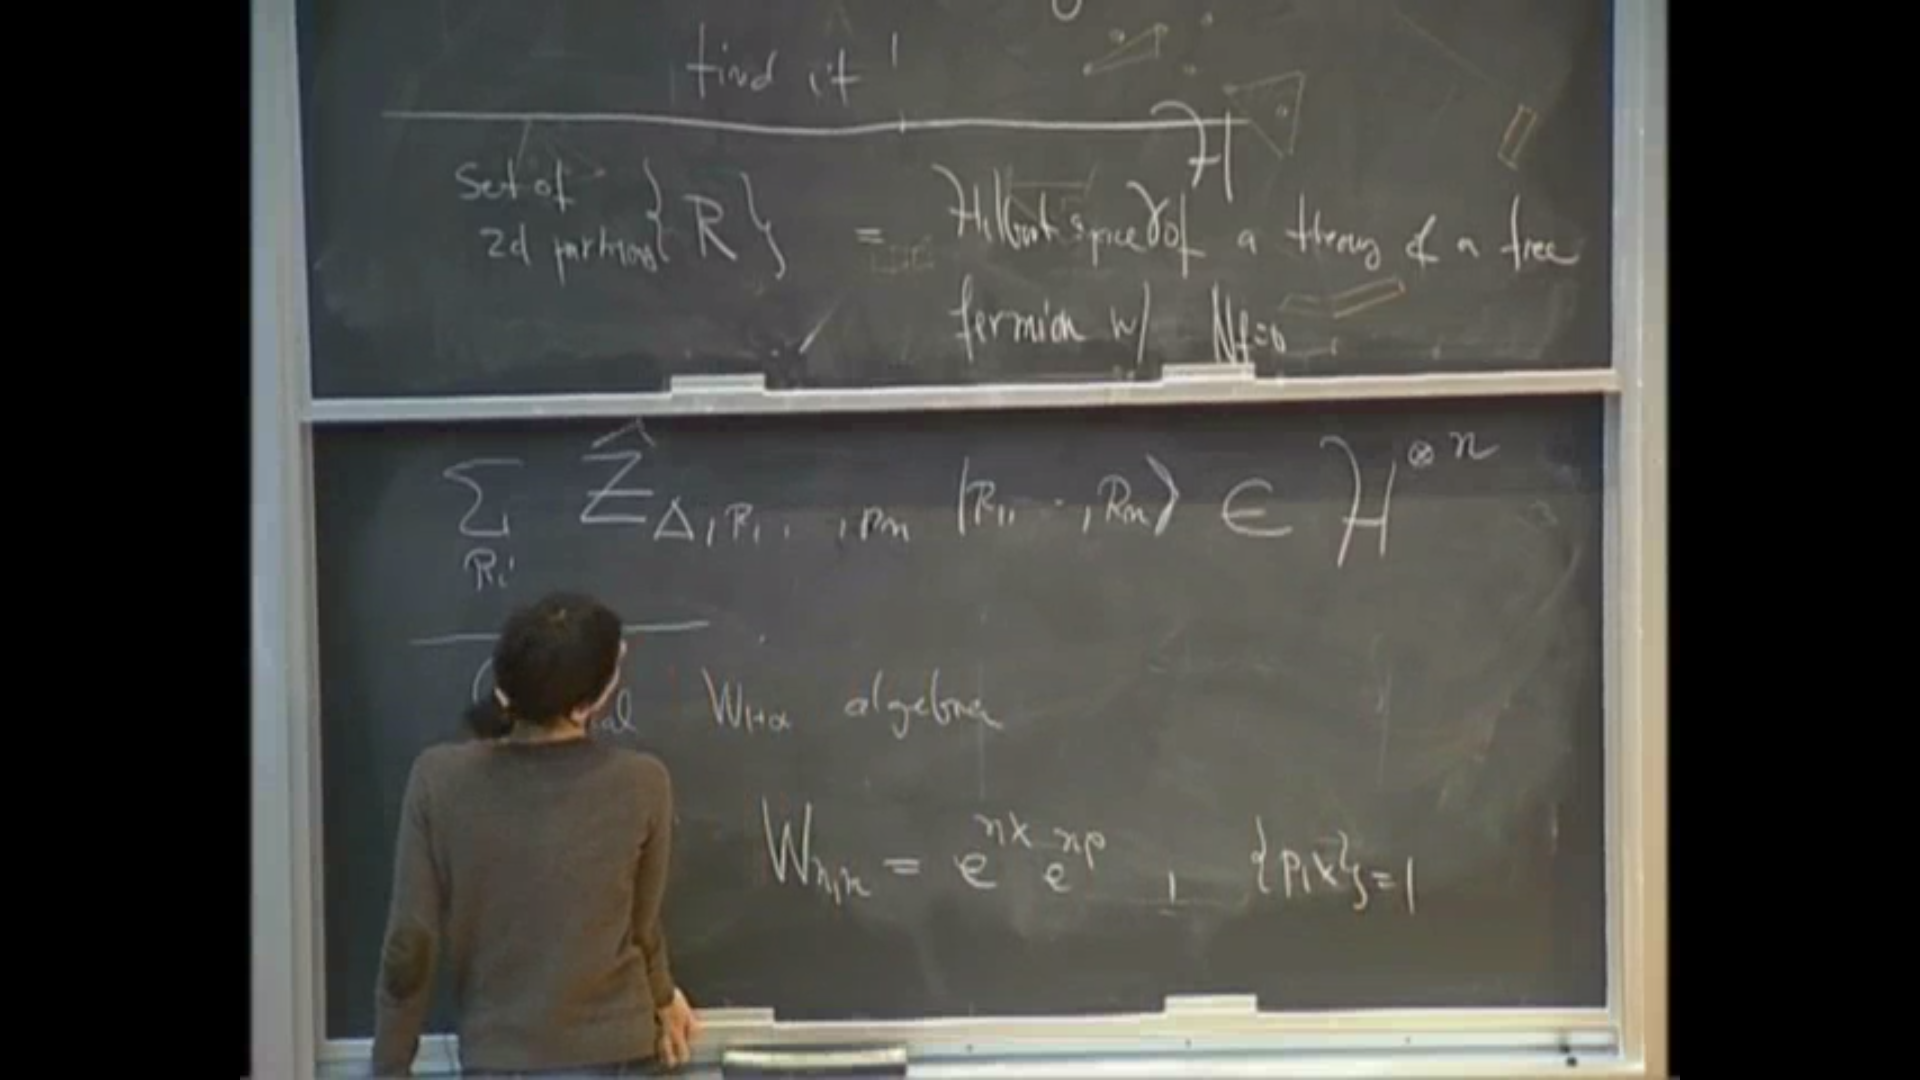 find it !
Set of
2d partitions { R } = Hilbert space H of a theory of a free
fermion w/ Nf=0
∑_{Ri} Ẑ_{Δ, R1, .. , Rn} |R1, .. , Rn⟩ ∈ H^{⊗ n}
W_{1+∞} algebra
W_{n,m} = e^{nx} e^{mp} , {p,x}=1